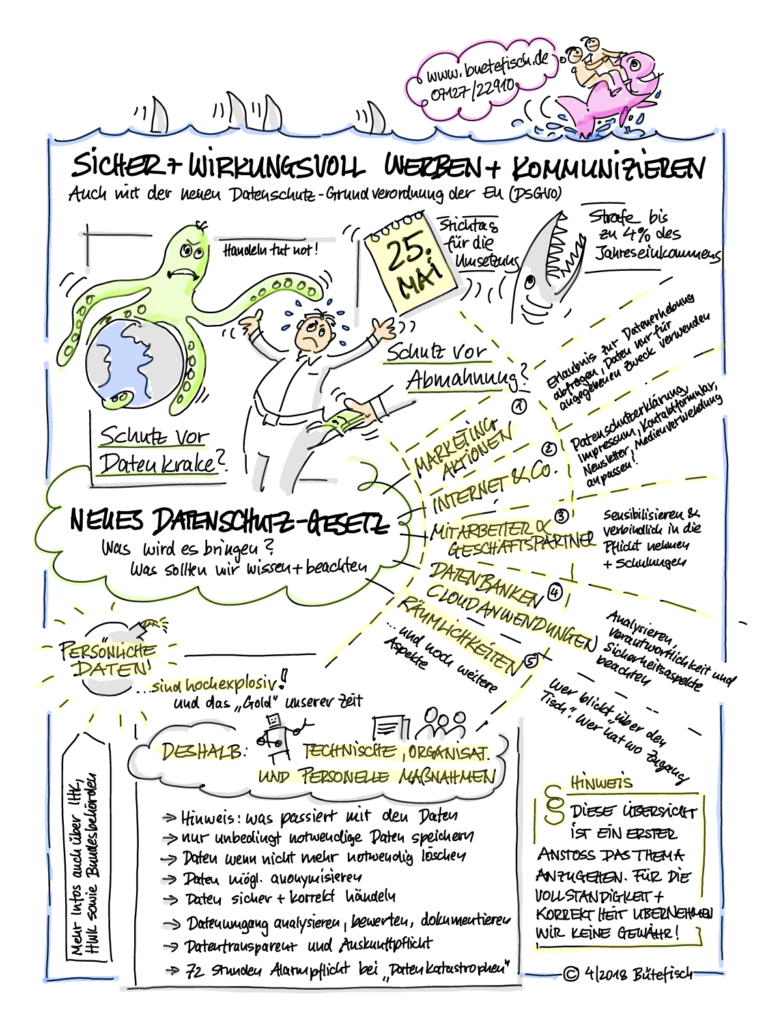 www.buetefisch.de
07127/22910
SICHER + WIRKUNGSVOLL WERBEN + KOMMUNIZIEREN
Auch mit der neuen Datenschutz-Grundverordnung der EU (DSGVO)
Handeln tut not!
25.
MAI
Stichtag
für die
Umsetzung
Strafe bis
zu 4% des
Jahreseinkommens
Schutz vor
Abmahnung?
Schutz vor
Datenkrake?
NEUES DATENSCHUTZ-GESETZ
Was wird es bringen?
Was sollten wir wissen + beachten
①
MARKETING
AKTIONEN
Erlaubnis zur Datenerhebung
abfragen, Daten nur für
angegebenen Zweck verwenden
②
INTERNET & CO.
Datenschutzerklärung,
Impressum, Kontaktformular,
Newsletter, Medienverwendung
anpassen!
③
MITARBEITER &
GESCHÄFTSPARTNER
Sensibilisieren &
verbindlich in die
Pflicht nehmen
+ Schulungen
④
DATENBANKEN
CLOUDANWENDUNGEN
Analysieren,
Verantwortlichkeit und
Sicherheitsaspekte
beachten
RÄUMLICHKEITEN ⑤
...und noch weitere
Aspekte
Wer blickt "über den
Tisch". Wer hat wo Zugang
PERSÖNLICHE
DATEN
...sind hochexplosiv!
und das „Gold" unserer Zeit
DESHALB: TECHNISCHE, ORGANISAT.
UND PERSONELLE MAẞNAHMEN
→ Hinweis: was passiert mit den Daten
→ nur unbedingt notwendige Daten speichern
→ Daten wenn nicht mehr notwendig löschen
→ Daten mögl. anonymisieren
→ Daten sicher + korrekt händeln
→ Datenumgang analysieren, bewerten, dokumentieren
→ Datentransparent und Auskunftpflicht
→ 72 Stunden Alarmpflicht bei „Datenkatastrophen"
Mehr Infos auch über IHK,
HWK sowie Bundesbehörden
§ HINWEIS
DIESE ÜBERSICHT
IST EIN ERSTER
ANSTOSS DAS THEMA
ANZUGEHEN. FÜR DIE
VOLLSTÄNDIGKEIT +
KORREKTHEIT ÜBERNEHMEN
WIR KEINE GEWÄHR!
© 4/2018 Bütefisch